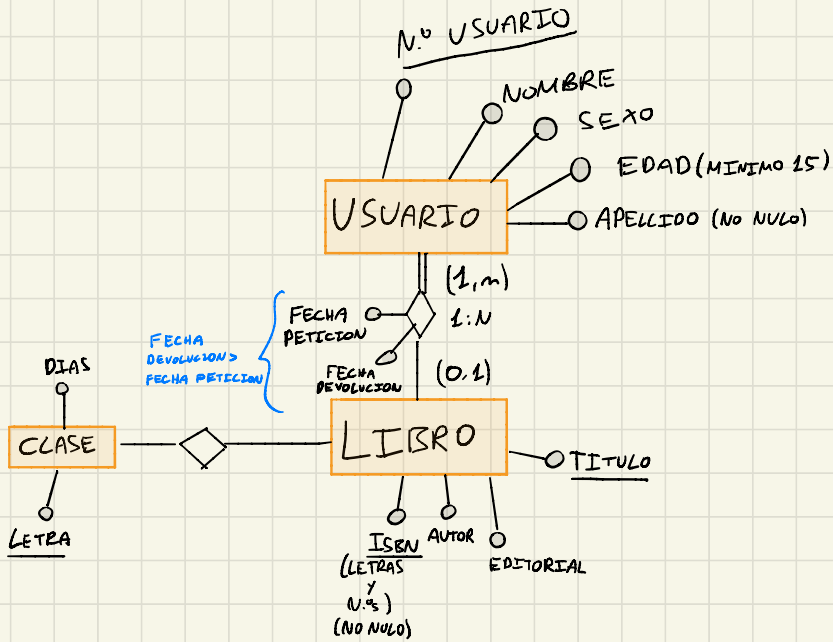 N.º USUARIO
NOMBRE
SEXO
EDAD (MINIMO 15)
APELLIDO (NO NULO)
USUARIO
(1,n)
1:N
FECHA
PETICION
FECHA
DEVOLUCION
FECHA
DEVOLUCION>
FECHA PETICION
(0,1)
DIAS
CLASE
LETRA
LIBRO
TITULO
ISBN
(LETRAS
Y
N.ºs)
(NO NULO)
AUTOR
EDITORIAL